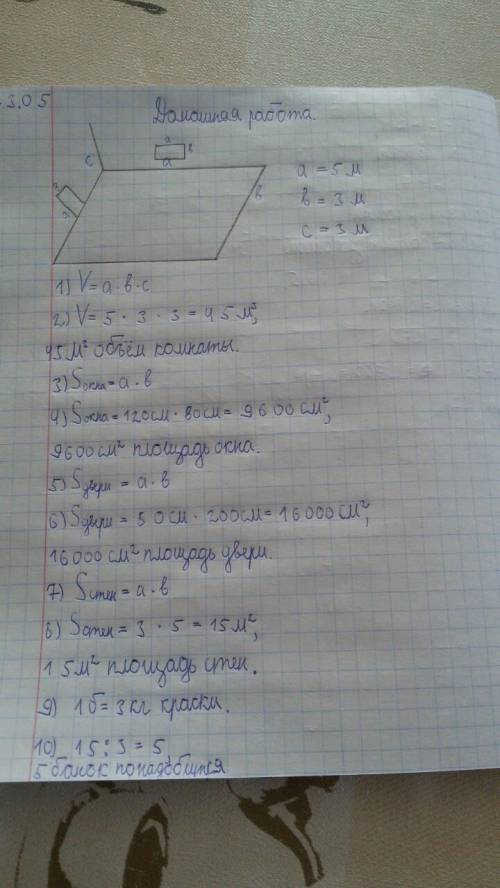 3.05
Домашняя работа.
a
в
c
a
в
a
в
a
a = 5 м
в = 3 м
c = 3 м
1) V = a · в · c
2) V = 5 · 3 · 3 = 45 м³,
45 м² объём комнаты.
3) Sокна = a · в
4) Sокна = 120см · 80см = 9600 см²,
9600 см² площадь окна.
5) Sдвери = a · в
6) Sдвери = 50см · 200см = 16000 см²,
16000 см² площадь двери.
7) Sстен = a · в
8) Sстен = 3 · 5 = 15 м²,
15 м² площадь стен.
9) 1б = 3 кг краски.
10) 15 : 3 = 5
5 банок понадобится